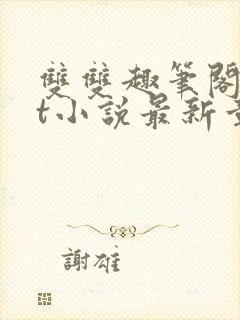 雙雙趣筆閣
t小說最新章
謝雄